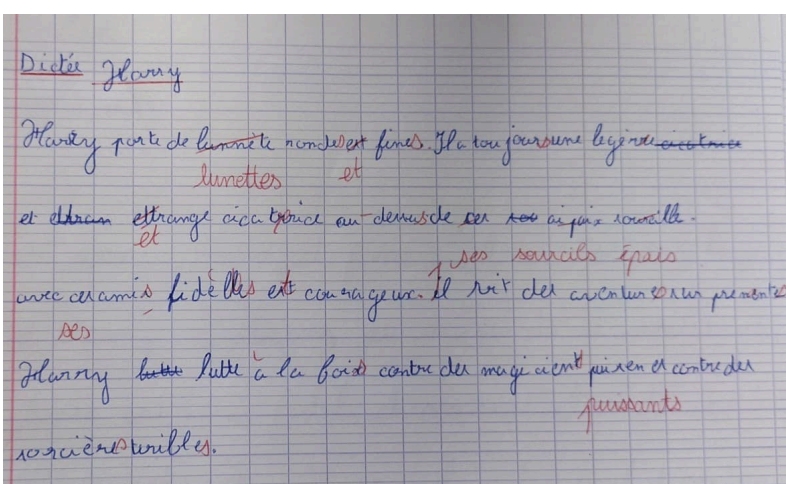 Dictée Harry
Harry porte de lunnète rondes est fines. Il a toujours une legère cicatrice
lunettes et
et ettrange cicatrice au-dessus de ses ai paix sourcille.
et ses sourcils épais
avec ces amis fidèlles est courageux. Il vit des aventures
ses
Harry lutte à la fois contre des magicient puisen et contre des
puissants
sorcières terribles.